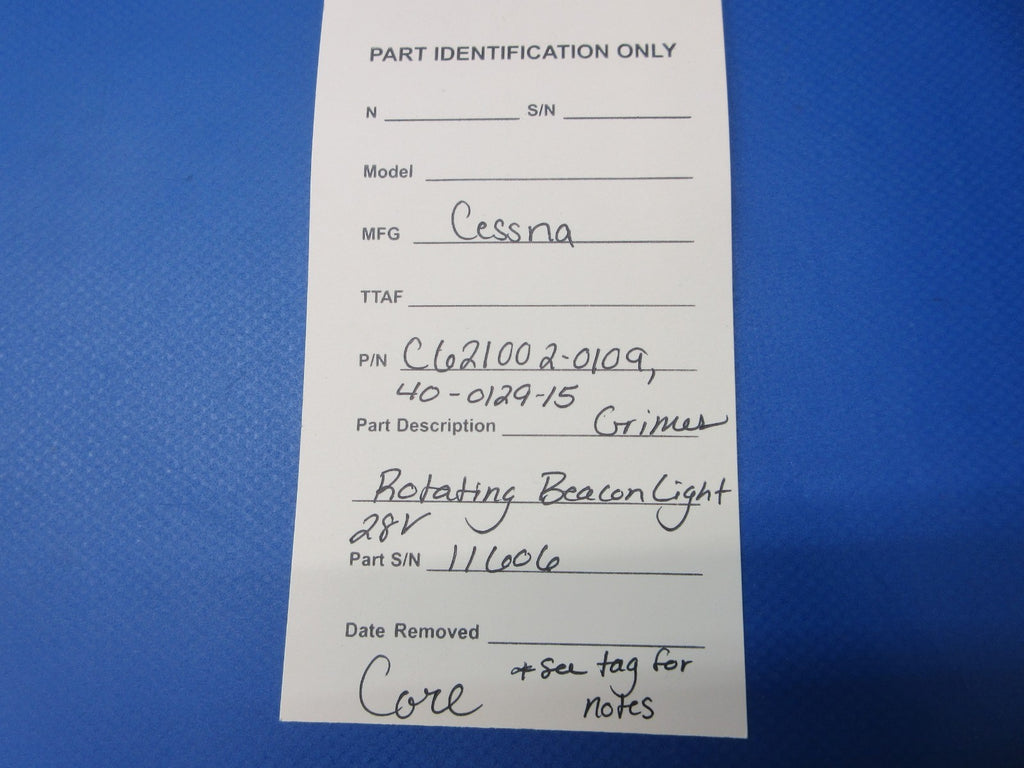 PART IDENTIFICATION ONLY
N S/N
Model
MFG Cessna
TTAF
P/N C621002-0109,
40-0129-15
Part Description Grimes
Rotating Beacon Light
28V
Part S/N 11606
Date Removed
Core *see tag for
notes